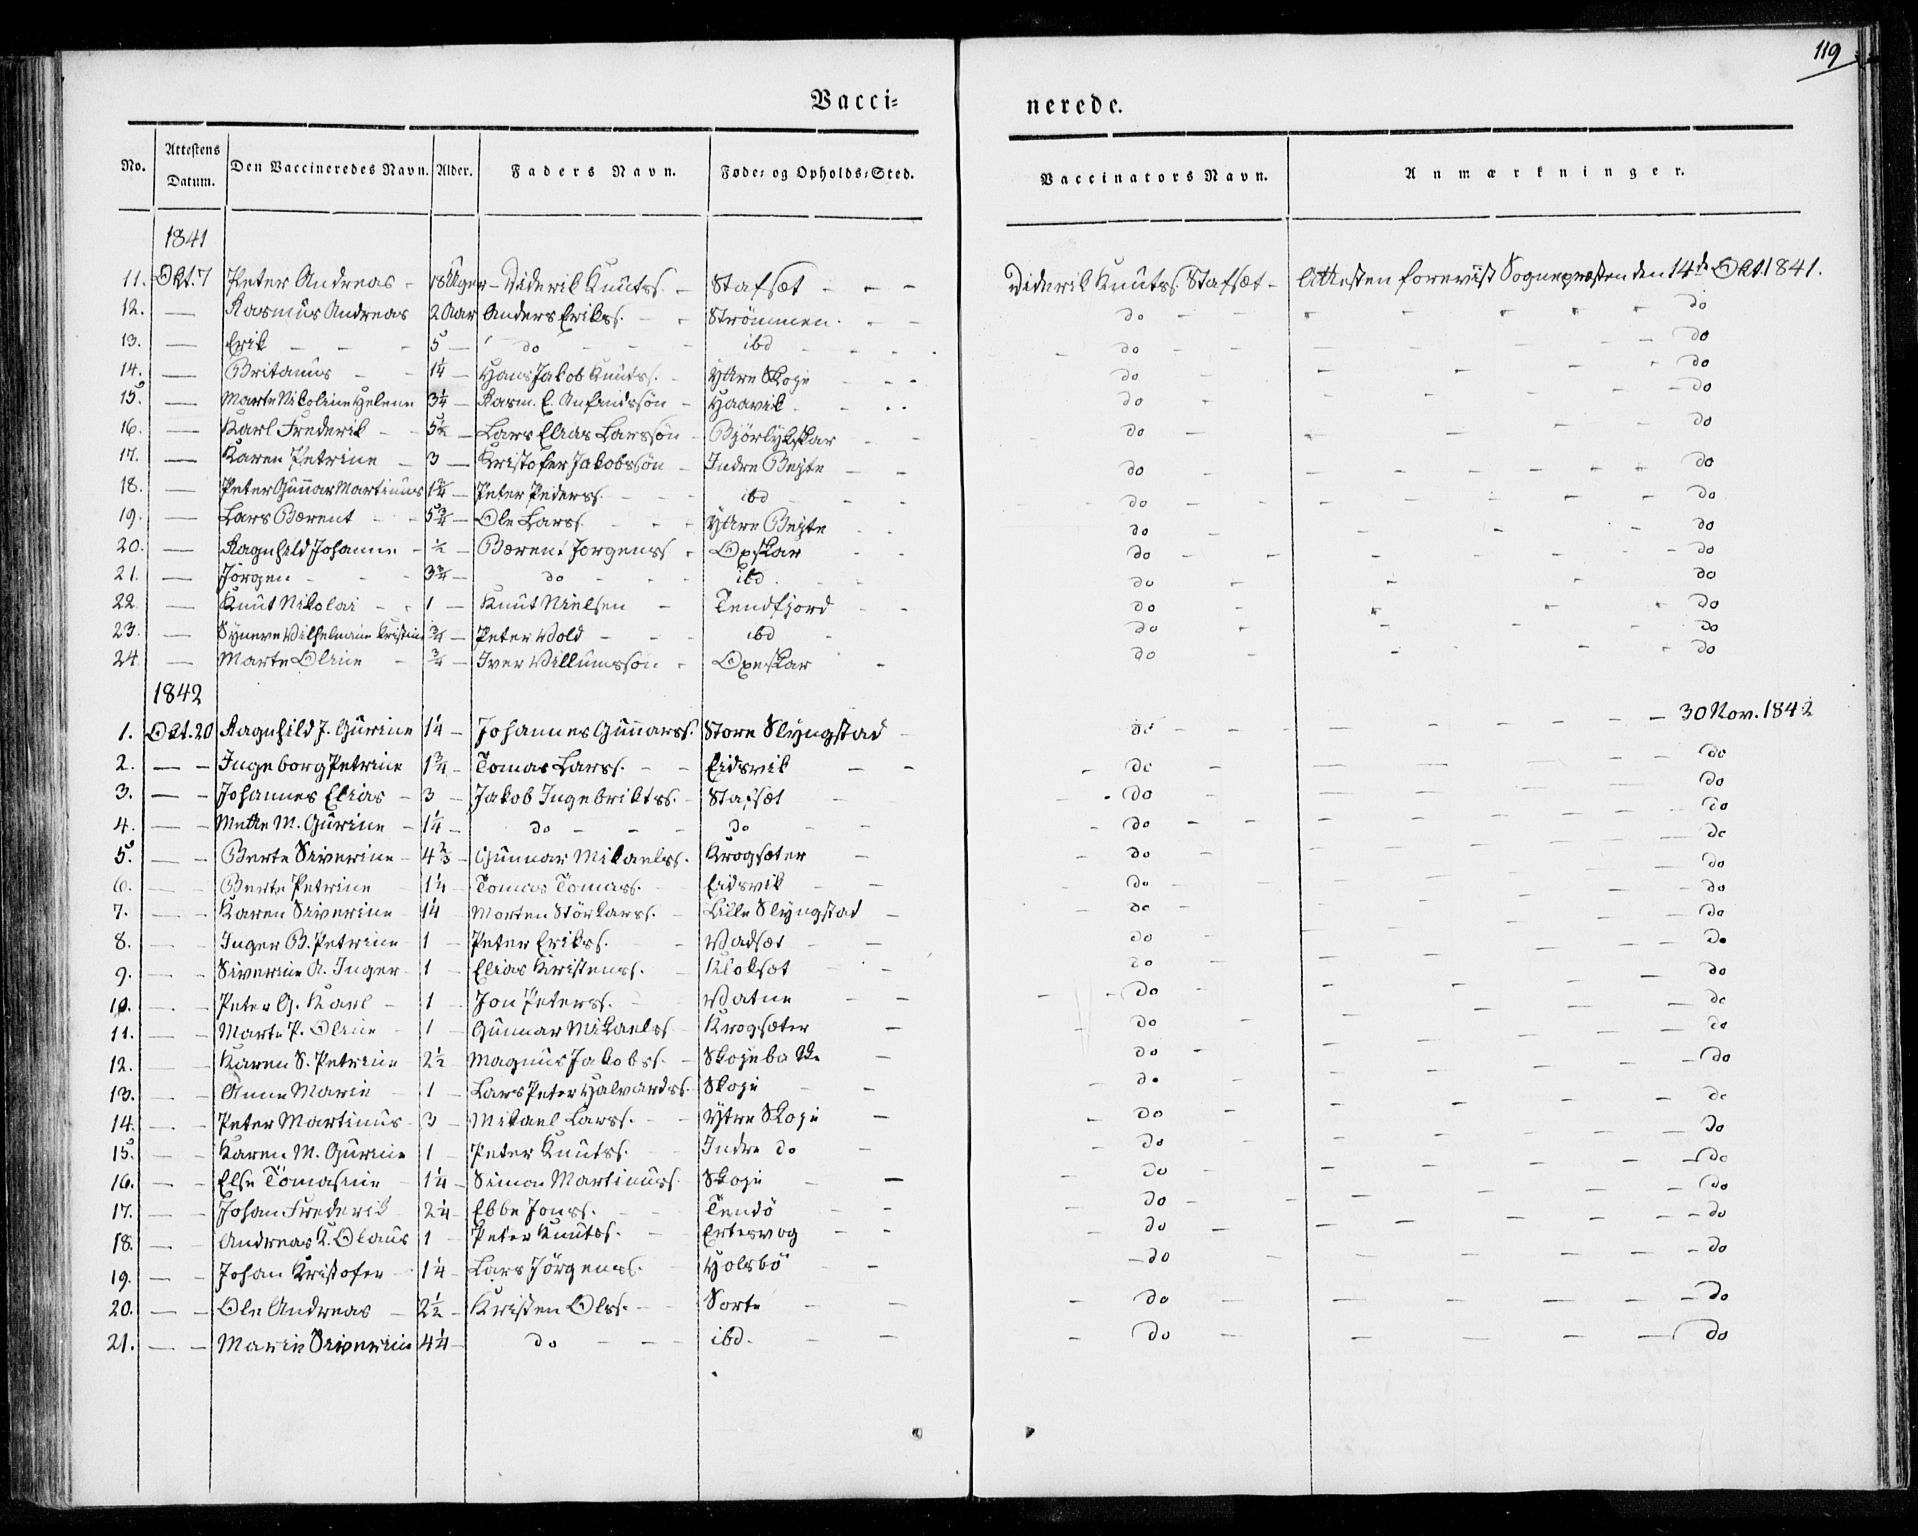 119
Vacci=
nerede.
No. Attestens Datum. Den Vaccineredes Navn. Alder. Faders Navn. Føde= og Opholds=Sted. Vaccinators Navn. Anmærkninger.
1841
11. Okt. 7 Peter Andreas - 18 Uger - Diderik Knutss. - Stafsæt - - - Diderik Knutss. Stafsæt - Attesten forevist Sognepræsten den 14de Okt. 1841.
12. — Rasmus Andreas 2 Aar Anders Erikss. - - Strömmen. - - do - - - do
13. — Erik - - - 5 — do - - - ibd - - - do - - - do
14. — Britanus - - 1¼ — Hans Jakob Knutss. - Yttre Skoje - - - do - - - do
15. — Marte Nikoline Helene 3¼ — Rasm. E. Anfindssön - Haavik - - - do - - - do
16. — Karl Frederik - - 5½ — Lars Elias Larssön - Björlykskar - - do - - - do
17. — Karen Petrine - 3 — Kristofer Jakobssön - Indre Bejte - - do - - - do
18. — Peter Gunnar Martinus 1¾ — Peter Pederss. - - - ibd - - - do - - - do
19. — Lars Bærent - - 5¾ — Ole Larss. - - - Yttre Bejte - - do - - - do
20. — Ragnhild Johanne - ½ — Bærent Jörgenss - Opskar - - do - - - do
21. — Jörgen - - - 3¾ — do - - - ibd. - - do - - - do
22. — Knut Nikolai - - 1 — Knut Nielsen - Tendfjord - - do - - - do
23. — Synneve Vilhelmine Kristine ¾ — Peter Vold - - - ibd - do - - - do
24. — Marte Oline - ¾ — Iver Villumssön - Opeskar - do - - - do
1842
1. Okt. 20 Ragnhild J. Gurine 1¼ — Johannes Gunnarss. Store Slyngstad - do - - - 30 Nov. 1842
2. — - Ingeborg Petrine 1¾ - Tomas Larss. - - Eidsvik - - do - - - do
3. — - Johannes Elias - 3 - Jakob Ingebriktss. - Stafsæt - do - - - do
4. — - Mette M. Gurine - 1¼ - do - - - do - - do - - - do
5. — - Berte Siverine - 4⅔ - Gunnar Mikaelss. Krogsæter - do - - - do
6. — - Berte Petrine - 1¼ - Tomas Tomass. - Eidsvik - - do - - - do
7. — - Karen Siverine 1¼ - Morten Störkarss. - Lille Slyngstad - do - - - do
8. — - Inger B. Petrine - 1 - Peter Erikss. - Vadsæt - - do - - - do
9. — - Siverine A. Inger - 1 - Elias Kristenss. - Kloksæt - - do - - - do
10. — - Peter G. Karl - 1 - Jon Peterss. - Vatne - - do - - - do
11. — - Marte P. Oline - 1 - Gunnar Mikaelss - Krogsæter - do - - - do
12. — - Karen S. Petrine 2½ - Magnus Jakobss. - Skojebakke - do - - - do
13. — - Anne Marie - 1 - Lars Peter Halvardss. Skoje - - do - - - do
14. — - Peter Martinus - 3 - Mikael Larss. - - Ytre Skoje - do - - - do
15. — - Karen M. Gurine 1 - Peter Knutss. - Indre do - do - - - do
16. — - Else Tomasine - 1¼ - Simon Martinuss. Skoje - - do - - - do
17. — - Johan Frederik - 2¼ - Ebbe Jonss. - - Tendö - - do - - - do
18. — - Andreas K. Olaus 1 - Peter Knutss. - Ertesvog - - do - - - do
19. — - Johan Kristofer - 1¼ - Lars Jörgenss. - Holsbö - - do - - - do
20. — - Ole Andreas - 2½ - Kristen Olss. - - Sorte - - do - - - do
21. — - Marie Siverine 4¼ - do - - - ibd. - - do - - - do